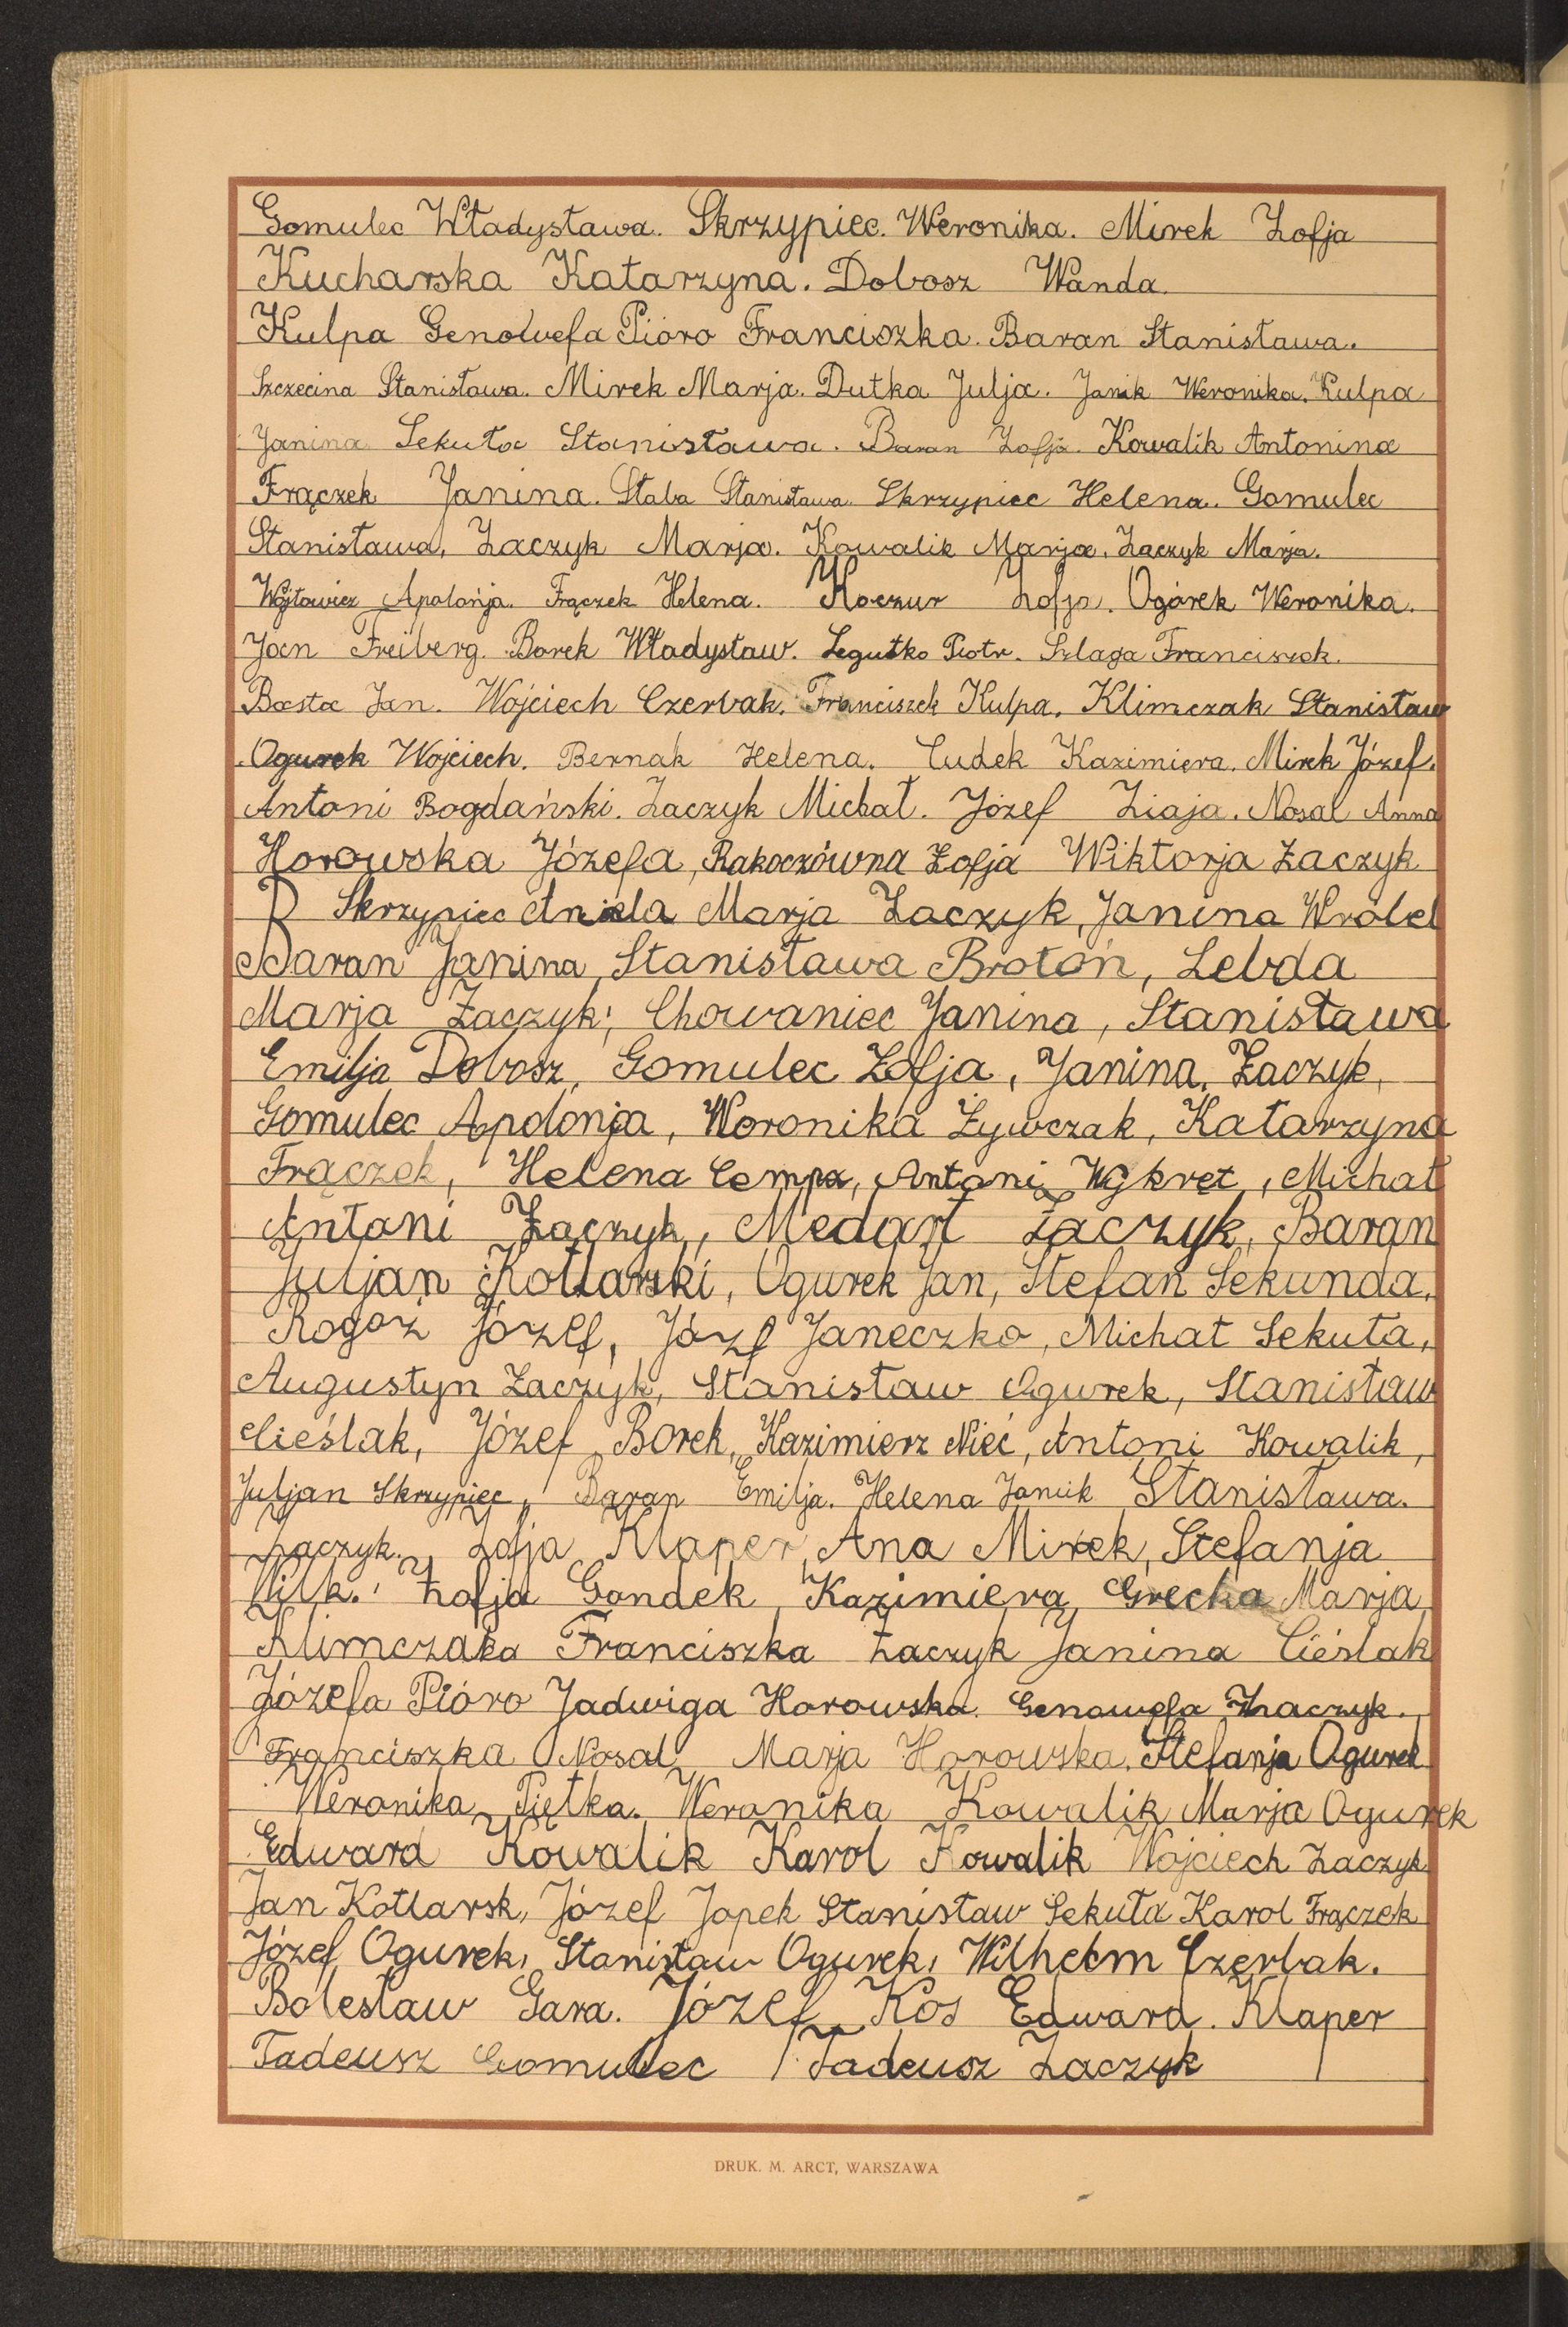 Gomulec Władysława. Skrzypiec. Weronika. Mirek Zofja
Kucharska Katarzyna. Dobosz Wanda.
Kulpa Genowefa Pióro Franciszka. Baran Stanisława.
Szczecina Stanisława. Mirek Marja. Dutka Julja. Janik Weronika. Kulpa
Janina Sekuła Stanisława. Baran Zofja. Kowalik Antonina
Frączek Janina. Staba Stanisława. Skrzypiec Helena. Gomulec
Stanisława, Żaczyk Marja. Kowalik Marja. Żaczyk Marja.
Wójtowicz Apolonja. Frączek Helena. Koczur Zofja. Ogórek Weronika.
Jan Freiberg. Borek Władysław. Legutko Piotr. Szlaga Franciszek.
Basta Jan. Wojciech Czerbak. Franciszek Kulpa. Klimczak Stanisław
Ogurek Wojciech. Bernak Helena. Cudek Kazimiera. Mirek Józef.
Antoni Bogdański. Żaczyk Michał. Józef Ziaja. Nosal Anna
Horowska Józefa, Rakoczówna Zofja Wiktorja Żaczyk
Skrzypiec Aniela Marja Żaczyk, Janina Wróbel
Baran Janina, Stanisława Brotoń, Lebda
Marja Żaczyk; Chowaniec Janina, Stanisława
Emilja Dobosz, Gomulec Zofja, Janina, Żaczyk,
Gomulec Apolonja, Woronika Żywczak, Katarzyna
Frączek, Helena Cempa, Antoni Wykręt, Michał
Antoni Żaczyk, Medart Żaczyk, Baran
Juljan Kotlarski, Ogurek Jan, Stefan Sekunda,
Rogoż Józef, Józf Janeczko, Michał Sekuła,
Augustyn Żaczyk, Stanisław Ogurek, Stanisław
Cieślak, Józef Borek, Kazimierz Nieć, Antoni Kowalik,
Juljan Skrzypiec, Baran Emilja. Helena Janik Stanisława.
Żaczyk. Zofja Klaper, Ana Mirek, Stefanja
Wilk. Zofja Gondek, Kazimiera, Grecka Marja
Klimczaka Franciszka Żaczyk Janina Cieślak
Józefa Pióro Jadwiga Horowska. Genowefa Żaczyk.
Franciszka Nosal Marja Horowska. Stefanja Ogurek
Weronika Piętka. Weronika Kowalik Marja Ogurek
Edward Kowalik Karol Kowalik Wojciech Żaczyk
Jan Kotlarsk, Józef Japek Stanisław Sekuła Karol Frączek
Józef Ogurek, Stanisław Ogurek, Wilhelm Czerbak.
Bolesław Gara. Józef Kos Edward. Klaper
Tadeusz Gomulec Tadeusz Żaczyk
DRUK. M. ARCT, WARSZAWA